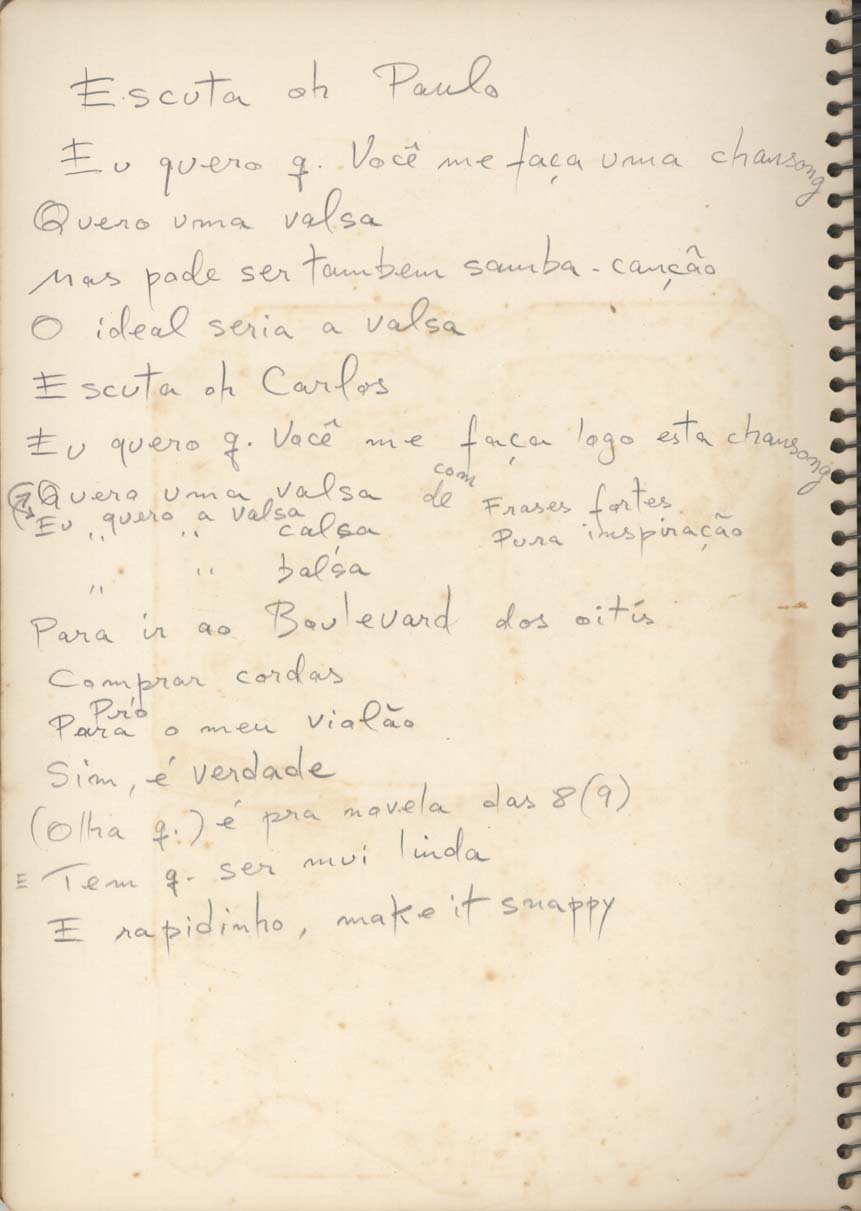 Escuta oh Paulo
Eu quero q. Você me faça uma chansong
Quero uma valsa
Mas pode ser tambem samba-canção
O ideal seria a valsa
Escuta oh Carlos
Eu quero q. Você me faça logo esta chansong
Quero uma valsa de com Frases fortes
Eu quero a valsa
" " calsa Pura inspiração
" " balsa
Para ir ao Boulevard dos oitis
Comprar cordas
Pr'o
Para o meu violão
Sim, é verdade
(Olha q.) é pra novela das 8(9)
E Tem q. ser mui linda
E rapidinho, make it snappy